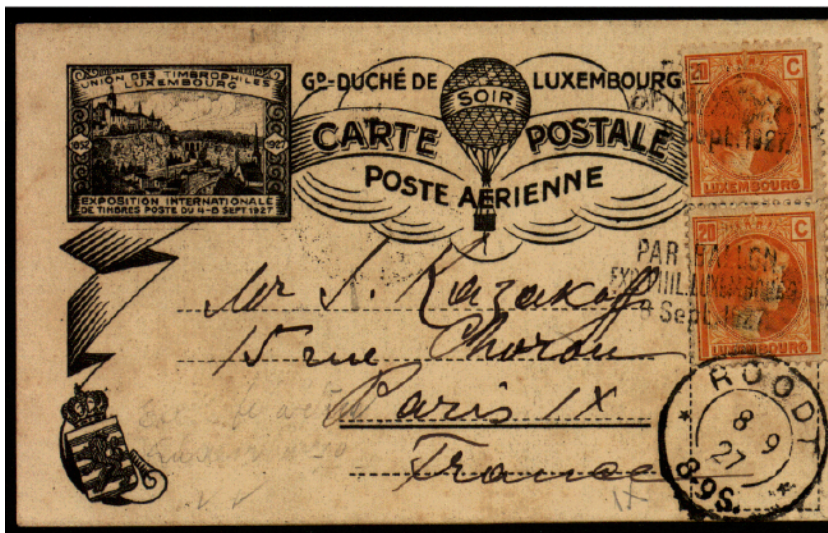 UNION DES TIMBROPHILES
LUXEMBOURG
1852 1927
EXPOSITION INTERNATIONALE
DE TIMBRES POSTE DU 4-8 SEPT 1927
GD-DUCHÉ DE LUXEMBOURG
SOIR
CARTE POSTALE
POSTE AÉRIENNE
20 C
Sept. 1927.
LUXEMBOURG
20 C
PAR BALLON
EXP. PHIL. LUXEMBOURG
8 Sept. 1927.
LUXEMBOURG
Mr S. Kazakoff
15 rue Choron
Paris IX
France
IX
ROODT
8 9
27
8-9S.